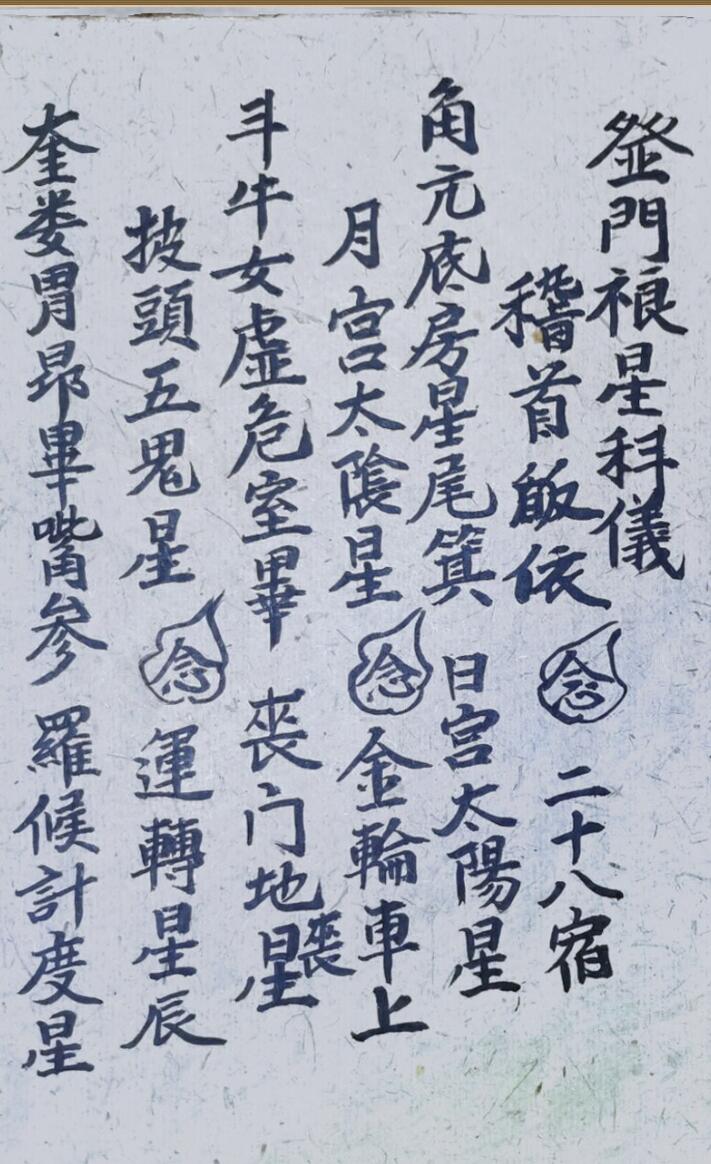 登門禳星科儀
稽首皈依 念 二十八宿
角元底房星尾箕 日宫太陽星
月宫太陰星 念 金輪車上
斗牛女虚危室畢 丧门地丧星
披頭五鬼星 念 運轉星辰
奎娄胃昴畢嘴参 羅候計度星